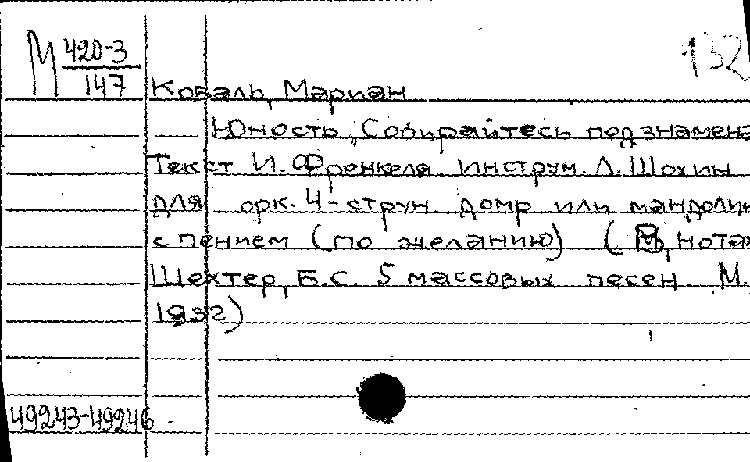 М 420-3
147
132
Коваль, Мариан
Юность „Собирайтесь под знамена
Текст И. Френкеля. Инструм. Л. Шохин
для орк. 4-струн. домр или мандолин
с пением (по желанию) (В нотах
Шехтер, Б.С. 5 массовых песен. М.
1932)
49243-49246